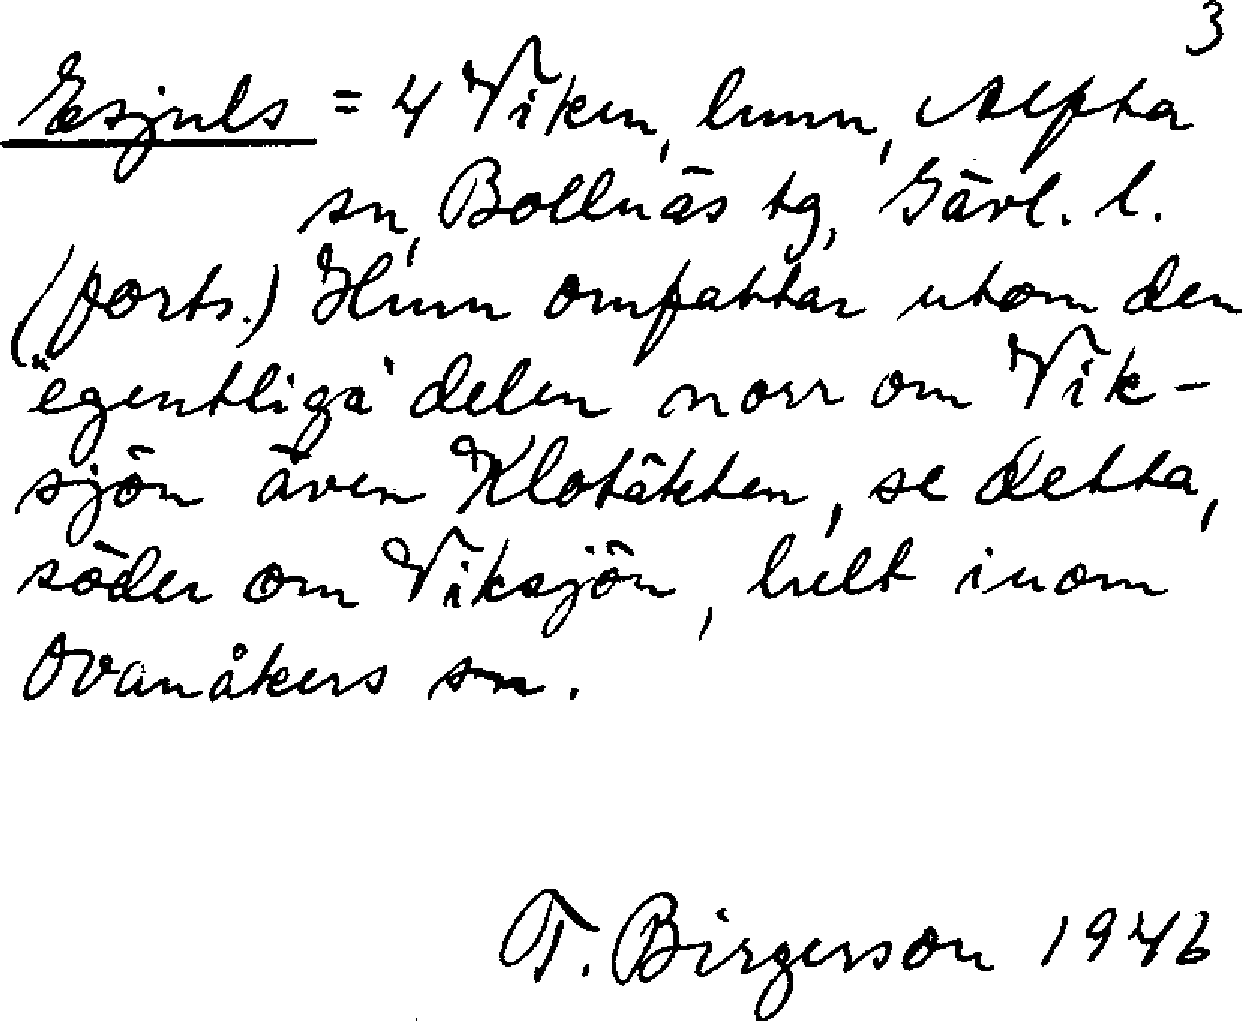 3
Esjuls = 4 Viken, hmn, Alfta
sn, Bollnäs tg, Gävl. l.
(forts.) Hmn omfattar utom den
"egentliga" delen norr om Vik-
sjön även Klotäkten, se detta,
söder om Viksjön, helt inom
Ovanåkers sn.
T. Birgerson 1946